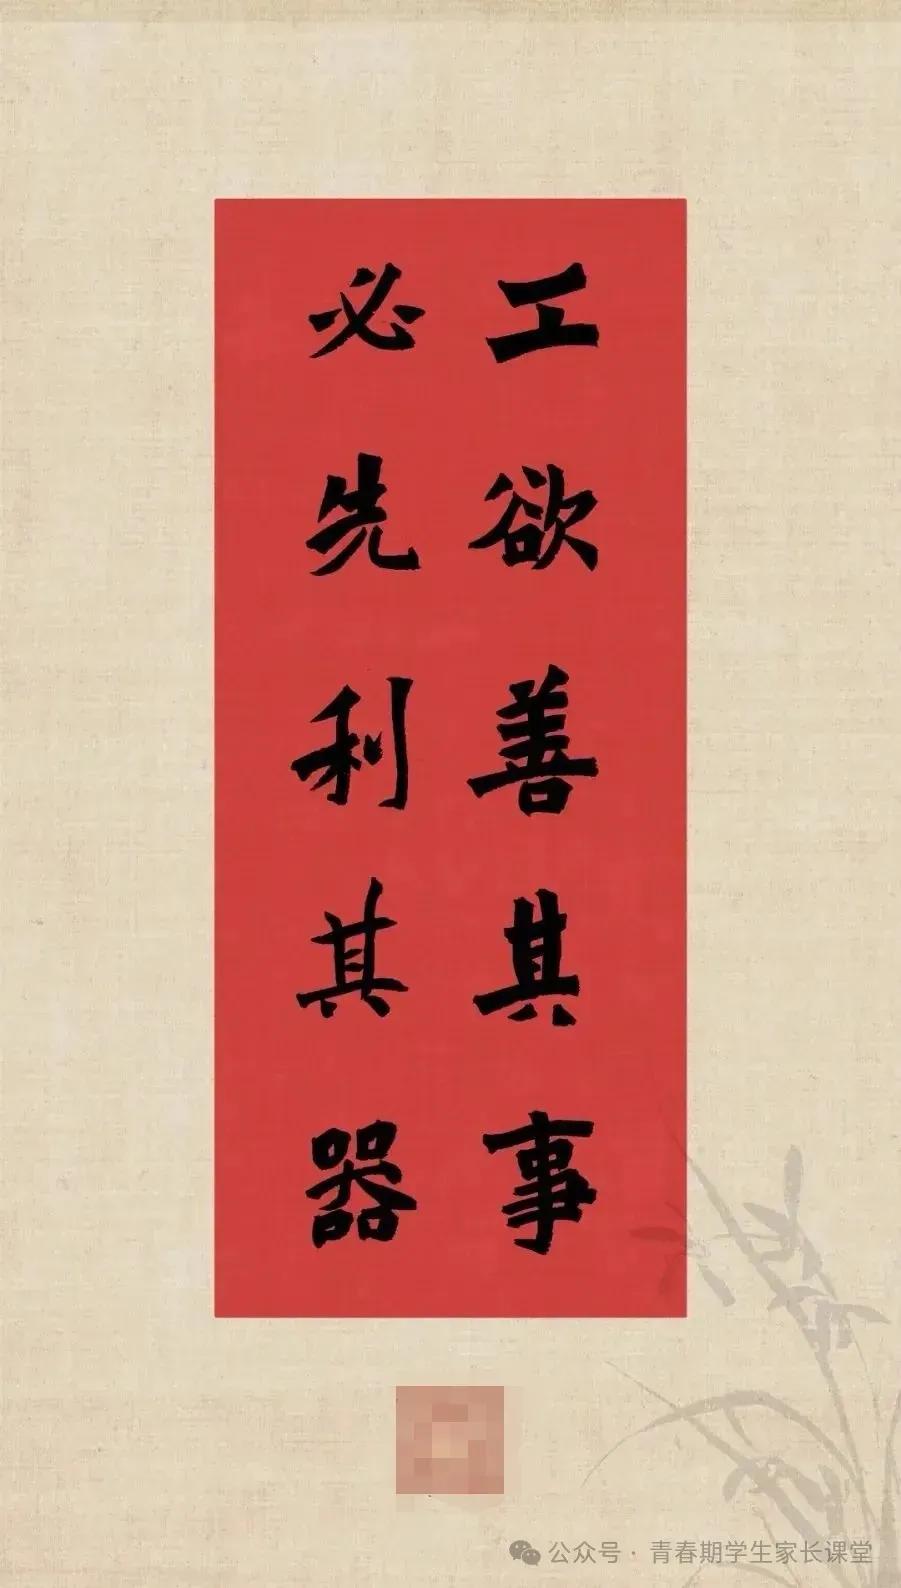 工欲善其事
必先利其器
公众号 · 青春期学生家长课堂